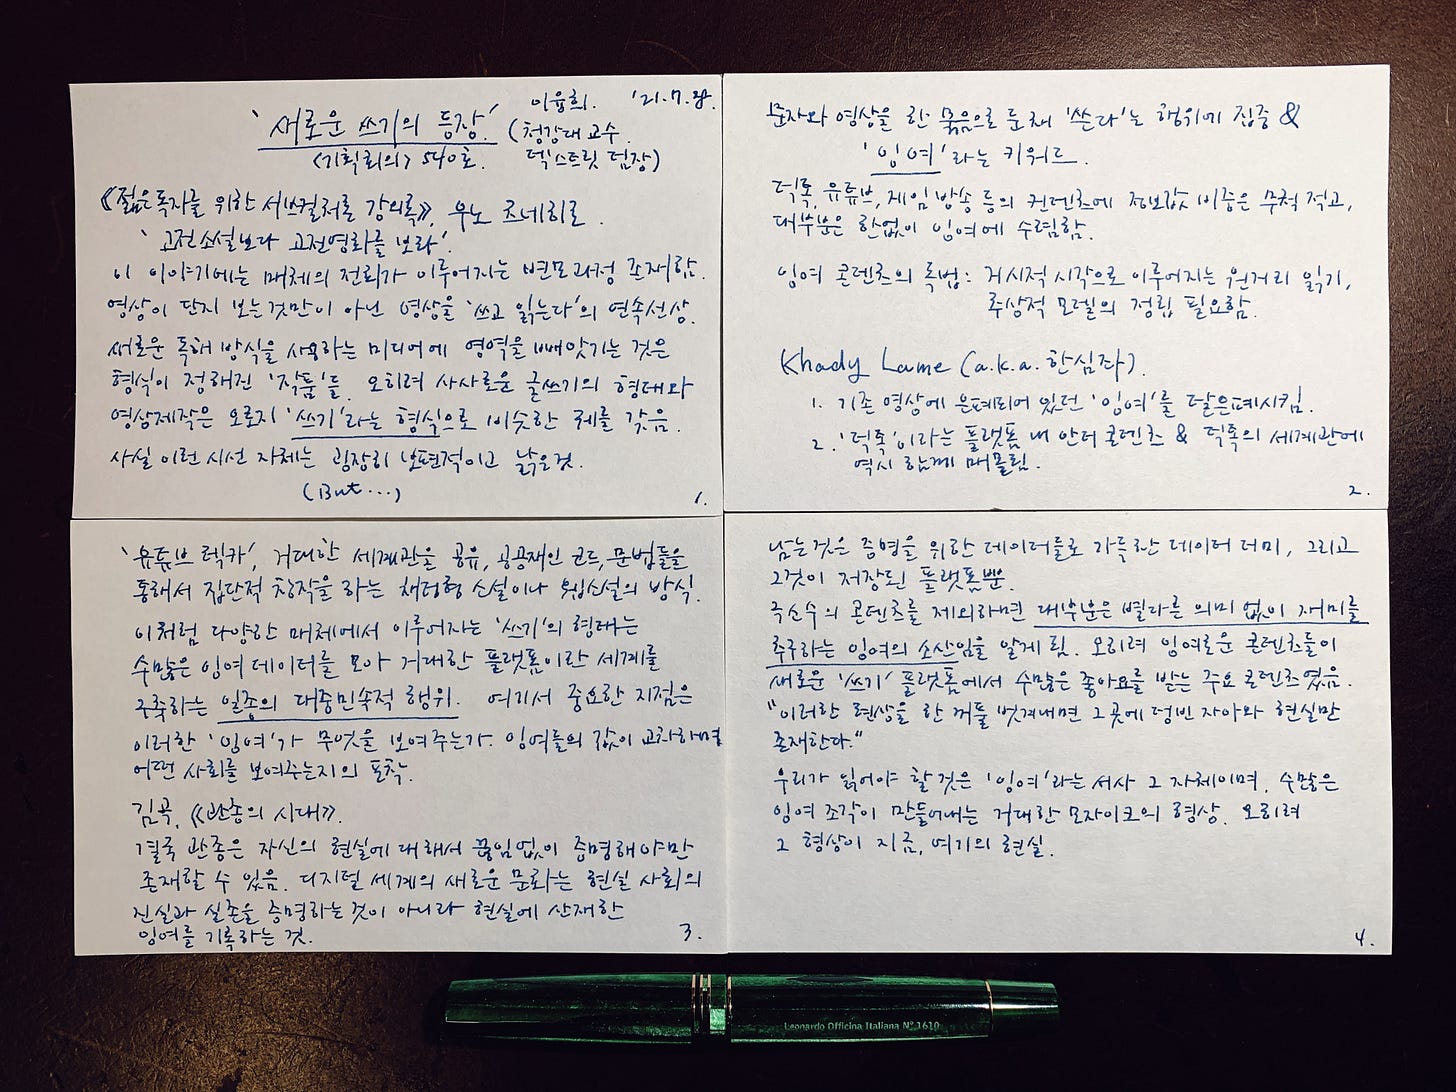 '새로운 쓰기의 등장.'
이융희. '21.7.
(청강대 교수.
<기획회의> 540호.
텍스트릿 팀장)
《젊은 독자를 위한 서브컬처론 강의록》, 우노 츠네히로.
'고전소설보다 고전영화를 보라'.
이 이야기에는 매체의 전회가 이루어지는 변모과정 존재함.
영상이 단지 보는 것만이 아닌 영상을 '쓰고 읽는다'의 연속선상.
새로운 독해 방식을 사용하는 미디어에 영역을 빼앗기는 것은
형식이 정해진 '작품'들. 오히려 사사로운 글쓰기의 형태와
영상제작은 오로지 '쓰기'라는 형식으로 비슷한 궤를 갖음.
사실 이런 시선 자체는 굉장히 보편적이고 낡은 것.
(But...)
1.
문자와 영상을 한 묶음으로 둔 채 '쓴다'는 행위에 집중 &
'잉여'라는 키워드.
틱톡, 유튜브, 게임 방송 등의 컨텐츠에 정보값 비중은 무척 적고,
대부분은 한없이 잉여에 수렴함.
잉여 콘텐츠의 독법: 거시적 시작으로 이루어지는 원거리 읽기,
추상적 모델의 정립 필요함.
Khady Lame (a.k.a. 한심좌).
1. 기존 영상에 은폐되어 있던 '잉여'를 탈은폐시킴.
2. '틱톡'이라는 플랫폼 내 안티 콘텐츠 & 틱톡의 세계관에
역시 함께 매몰됨.
2.
'유튜브 렉카', 거대한 세계관을 공유, 공공재인 코드, 문법들을
통해서 집단적 창작을 하는 채팅형 소설이나 웹소설의 방식.
이처럼 다양한 매체에서 이루어지는 '쓰기'의 형태는
수많은 잉여 데이터를 모아 거대한 플랫폼이란 세계를
구축하는 일종의 대중민속적 행위. 여기서 중요한 지점은
이러한 '잉여'가 무엇을 보여주는가. 잉여들의 값이 교차하며
어떤 사회를 보여주는지의 포착.
김곡, 《관종의 시대》.
결국 관종은 자신의 현실에 대해서 끊임없이 증명해야만
존재할 수 있음. 디지털 세계의 새로운 문화는 현실 사회의
진실과 실존을 증명하는 것이 아니라 현실에 산재한
잉여를 기록하는 것.
3.
남는 것은 증명을 위한 데이터들로 가득찬 데이터 더미, 그리고
그것이 저장된 플랫폼뿐.
극소수의 콘텐츠를 제외하면 대부분은 별다른 의미 없이 재미를
추구하는 잉여의 소산임을 알게 됨. 오히려 잉여로운 콘텐츠들이
새로운 '쓰기' 플랫폼에서 수많은 좋아요를 받는 주요 콘텐츠였음.
"이러한 현상을 한 꺼풀 벗겨내면 그곳에 텅빈 자아와 현실만
존재한다."
우리가 읽어야 할 것은 '잉여'라는 서사 그 자체이며, 수많은
잉여 조각이 만들어내는 거대한 모자이크의 형상. 오히려
그 형상이 지금, 여기의 현실.
4.
Leonardo Officina Italiana N° 1610